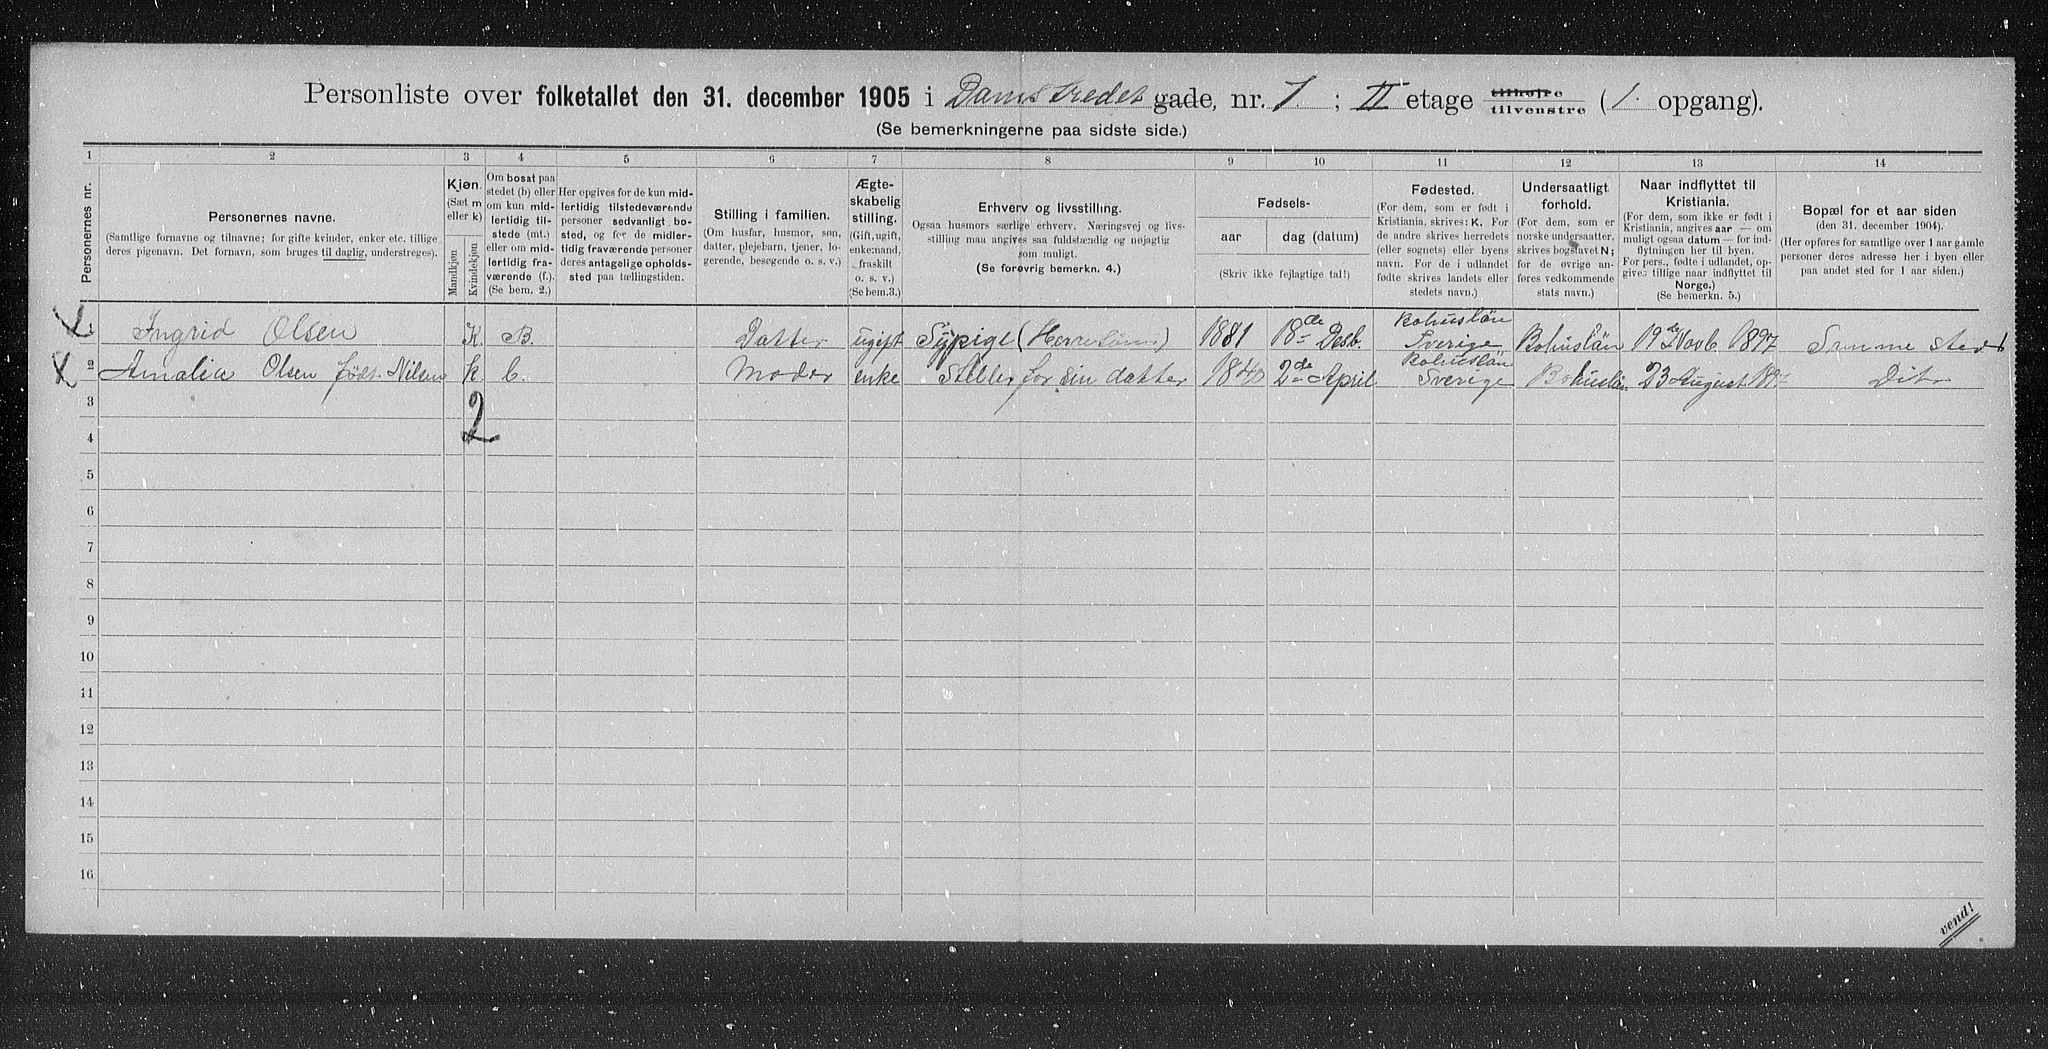 Personliste over folketallet den 31. december 1905 i Damstredet gade, nr. 7 ; II etage tilhøjre tilvenstre (1. opgang).
(Se bemerkningerne paa sidste side.)
1 2 3 4 5 6 7 8 9 10 11 12 13 14
Personernes nr.
Personernes navne.
(Samtlige fornavne og tilnavne; for gifte kvinder, enker etc. tillige
deres pigenavn. Det fornavn, som bruges til daglig, understreges).
Kjøn.
(Sæt m
eller k)
Mandkjøn
Kvindekjøn
Om bosat paa
stedet (b) eller
om kun mid-
lertidig til-
stede (mt.)
eller om mid-
lertidig fra-
værende (f.).
(Se bem. 2.)
Her opgives for de kun mid-
lertidig tilstedeværende
personer sedvanligt bo-
sted, og for de midler-
tidig fraværende personer
deres antagelige opholds-
sted paa tællingstiden.
Stilling i familien.
(Om husfar, husmor, søn,
datter, plejebarn, tjener, lo-
gerende, besøgende o. s. v.)
Ægte-
skabelig
stilling.
(Gift, ugift,
enkemand,
fraskilt
o. s. v.)
(Se bem.3.)
Erhverv og livsstilling.
Ogsaa husmors særlige erhverv. Næringsvej og livs-
stilling maa angives saa fuldstændig og nøjagtig
som muligt.
(Se forøvrig bemerkn. 4.)
Fødsels-
aar dag (datum)
(Skriv ikke fejlagtige tal!)
Fødested.
(For dem, som er født i
Kristiania, skrives: K. For
de andre skrives herredets
(eller sognets) eller byens
navn. For de i udlandet
fødte skrives landets eller
stedets navn.)
Undersaatligt
forhold.
(For dem, som er
norske undersaatter,
skrives bogstavet N;
for de øvrige an-
føres vedkommende
stats navn.)
Naar indflyttet til
Kristiania.
(For dem, som ikke er født i
Kristiania, angives aar — om
muligt ogsaa datum — for ind-
flytningen her til byen.
For pers., fødte i udlandet, op-
gives tillige naar indflyttet til
Norge.)
(Se bemerkn. 5.)
Bopæl for et aar siden
(den 31. december 1904).
(Her opføres for samtlige over 1 aar gamle
personer deres adresse her i byen eller
paa andet sted for 1 aar siden.)
1 Ingrid Olsen K. B. Datter ugift Sypige 1881 18de Desb. Bohuslän Sverige Bohuslän 19de Novb 1897 Samme sted
2 Amalia Olsen født. Nilsen k. b. Moder enke Steller for sin datter 1840 2de April Bohuslän Sverige Bohuslän 23 August 1897 Dito
2
3
4
5
6
7
8
9
10
11
12
13
14
15
16
vend!